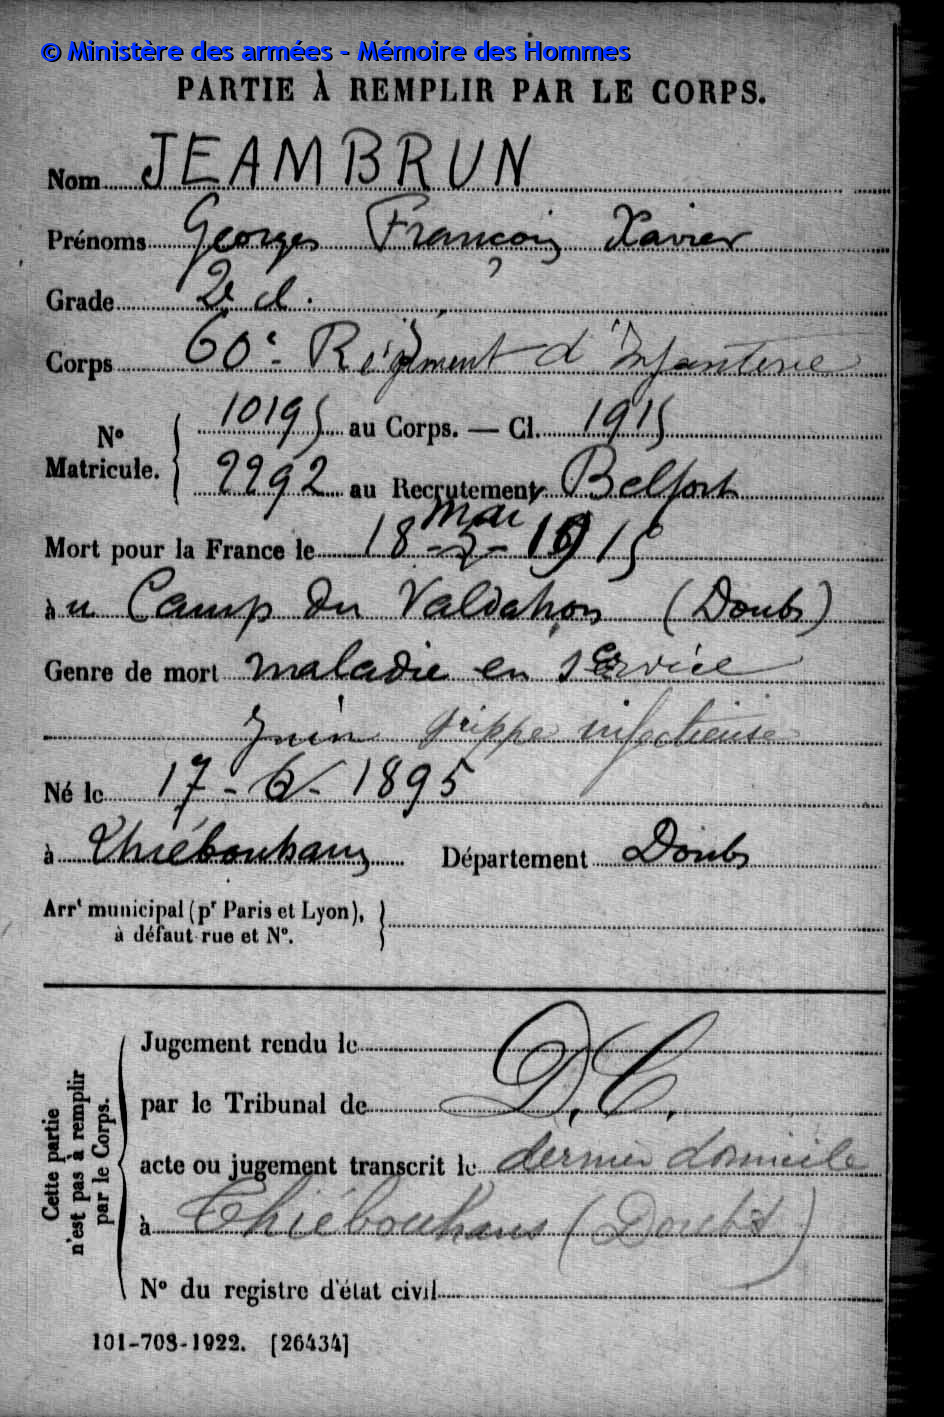 © Ministère des armées - Mémoire des Hommes
PARTIE À REMPLIR PAR LE CORPS.
Nom JEAMBRUN
Prénoms Georges François Xavier
Grade 2e cl.
Corps 60e Régiment d'Infanterie
N° Matricule. 10195 au Corps. — Cl. 1915
2292 au Recrutement Belfort
mai
Mort pour la France le 18 - 5 - 1915
à u Camp du Valdahon (Doubs)
Genre de mort maladie en service
Juin grippe infectieuse
Né le 17 - 6 - 1895
à Thiébouhans Département Doubs
Arrt municipal (pr Paris et Lyon),
à défaut rue et N°.
Cette partie n'est pas à remplir par le Corps.
Jugement rendu le
par le Tribunal de D. C.
acte ou jugement transcrit le dernier domicile
à Thiébouhans (Doubs)
N° du registre d'état civil
101-708-1922. [26434]